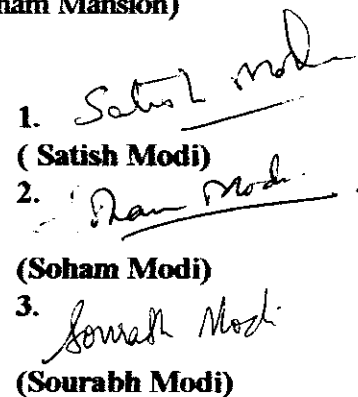 ham Mansion)
1. Satish Modi
( Satish Modi)
2. Soham Modi.
(Soham Modi)
3. Sourabh Modi
(Sourabh Modi)